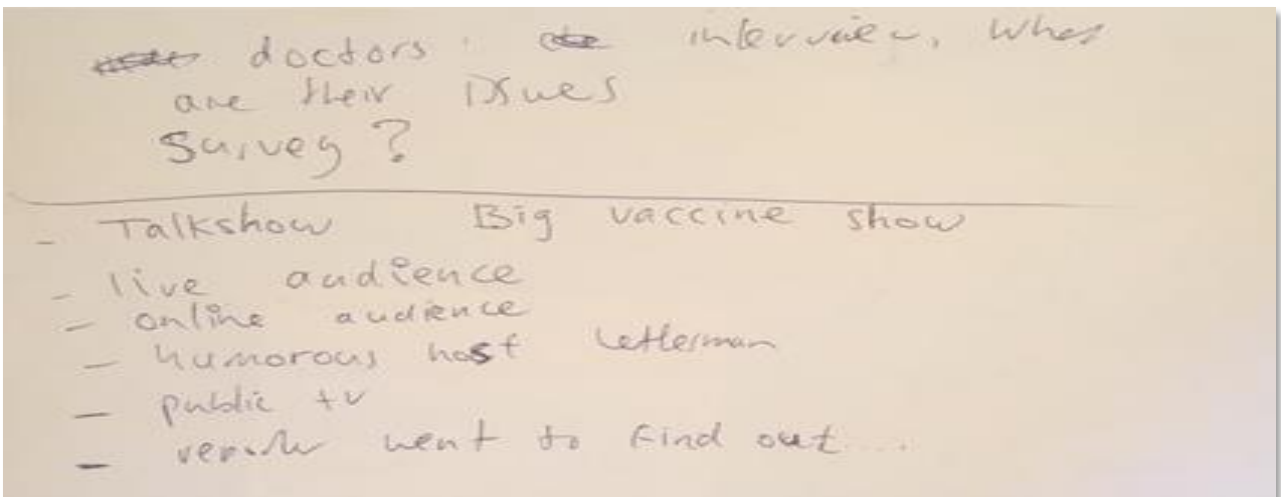 doctors : interview, What
are their issues
Survey ?
- Talkshow Big vaccine show
- live audience
- online audience
- humorous host Letterman
- public tv
- went to find out ...